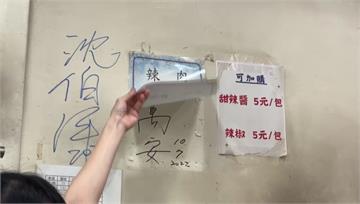 沈
伯
洋
辣 肉
萬
安
10
7
2022
可加購
甜辣醬 5元/包
辣椒 5元/包